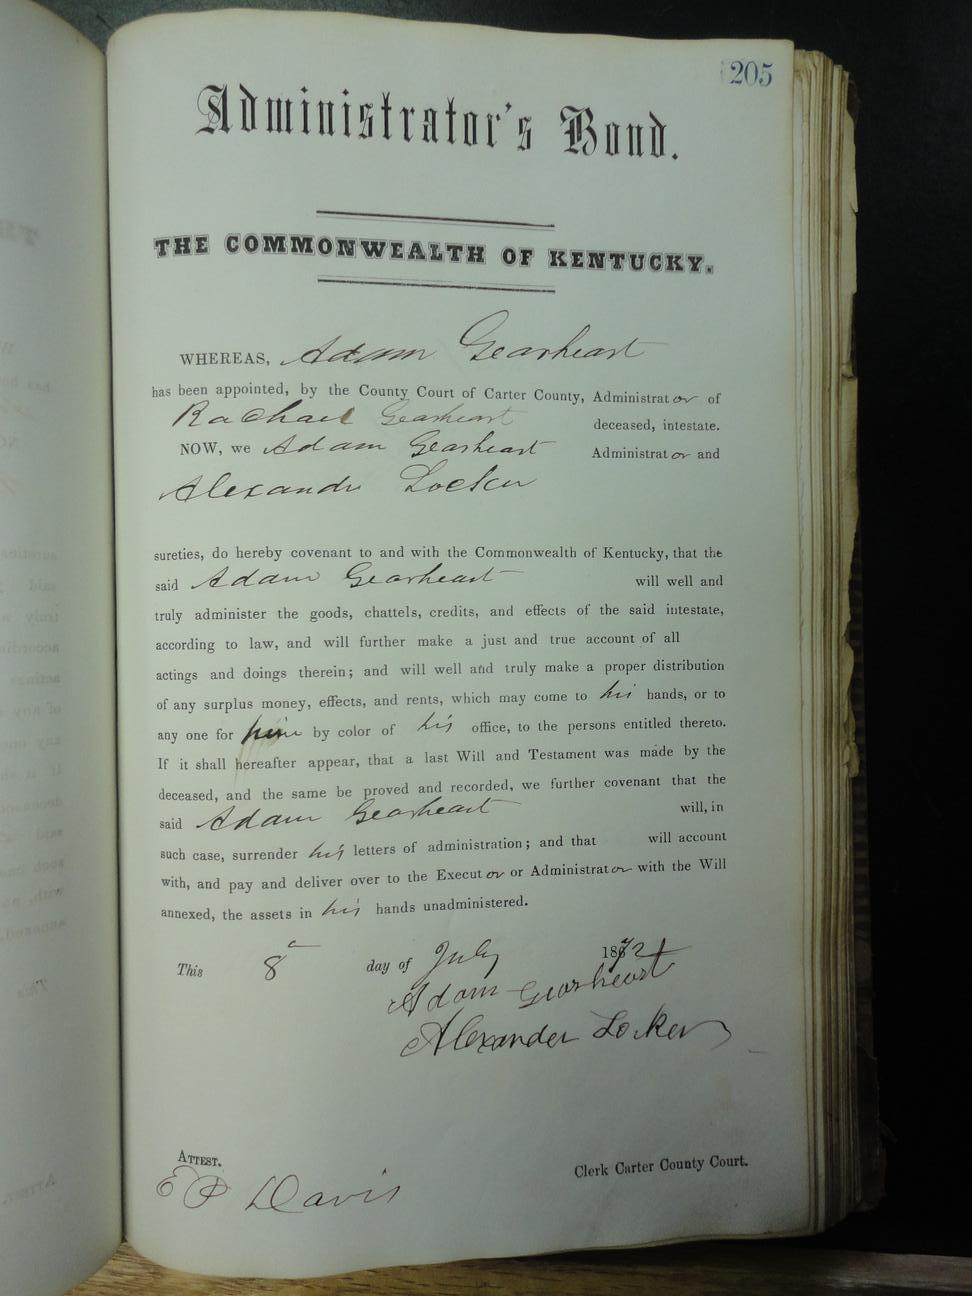 205
Administrator's Bond.
THE COMMONWEALTH OF KENTUCKY.
WHEREAS, Adam Gearheart
has been appointed, by the County Court of Carter County, Administrator of
Rachael Gearheart deceased, intestate.
NOW, we Adam Gearheart Administrator and
Alexandr Locker
sureties, do hereby covenant to and with the Commonwealth of Kentucky, that the
said Adam Gearheart will well and
truly administer the goods, chattels, credits, and effects of the said intestate,
according to law, and will further make a just and true account of all
actings and doings therein; and will well and truly make a proper distribution
of any surplus money, effects, and rents, which may come to his hands, or to
any one for him by color of his office, to the persons entitled thereto.
If it shall hereafter appear, that a last Will and Testament was made by the
deceased, and the same be proved and recorded, we further covenant that the
said Adam Gearheart will, in
such case, surrender his letters of administration; and that will account
with, and pay and deliver over to the Executor or Administrator with the Will
annexed, the assets in his hands unadministered.
This 8 day of July 1872
Adam Gearheart
Alexander Locker
ATTEST.
E P Davis
Clerk Carter County Court.